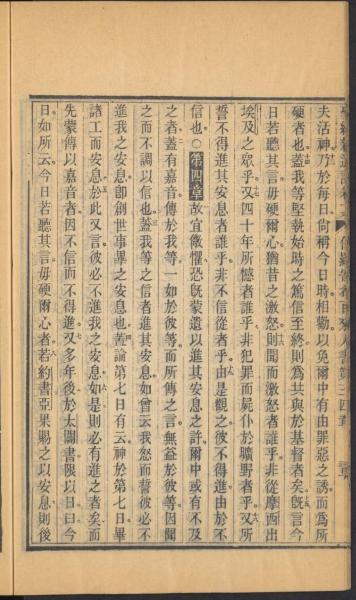 夫活神乃於每日尙稱今日時相勸以免爾中有由罪惡之誘而爲所
硬者也蓋我等堅執始時之篤信至終則爲共與於基督者矣旣言今
日若聽其言毋硬爾心猶昔之激怒則聞而激怒者誰乎非從摩西出
埃及之眾乎又四十年所憾者誰乎非犯罪而屍仆於曠野者乎又所
誓不得進其安息者誰乎非不信從者乎由是觀之彼不得進由於不
信也○第四章故宜儆懼恐旣蒙遺以進其安息之許爾中或有不及
之者蓋有嘉音傳於我等一如於彼等而所傳之言無益於彼等因聞
之而不調以信也蓋我等之信者進其安息如曾云我怒而誓彼必不
進我之安息卽創世事畢之安息也蓋論第七日有云神於第七日畢
諸工而安息於此又言彼必不進我之安息如是則必有進之者矣而
先蒙傳以嘉音者因不信而不得進又多年後於大闢書限以日曰今
日如所云今日若聽其言毋硬爾心者若約書亞果賜之以安息則後